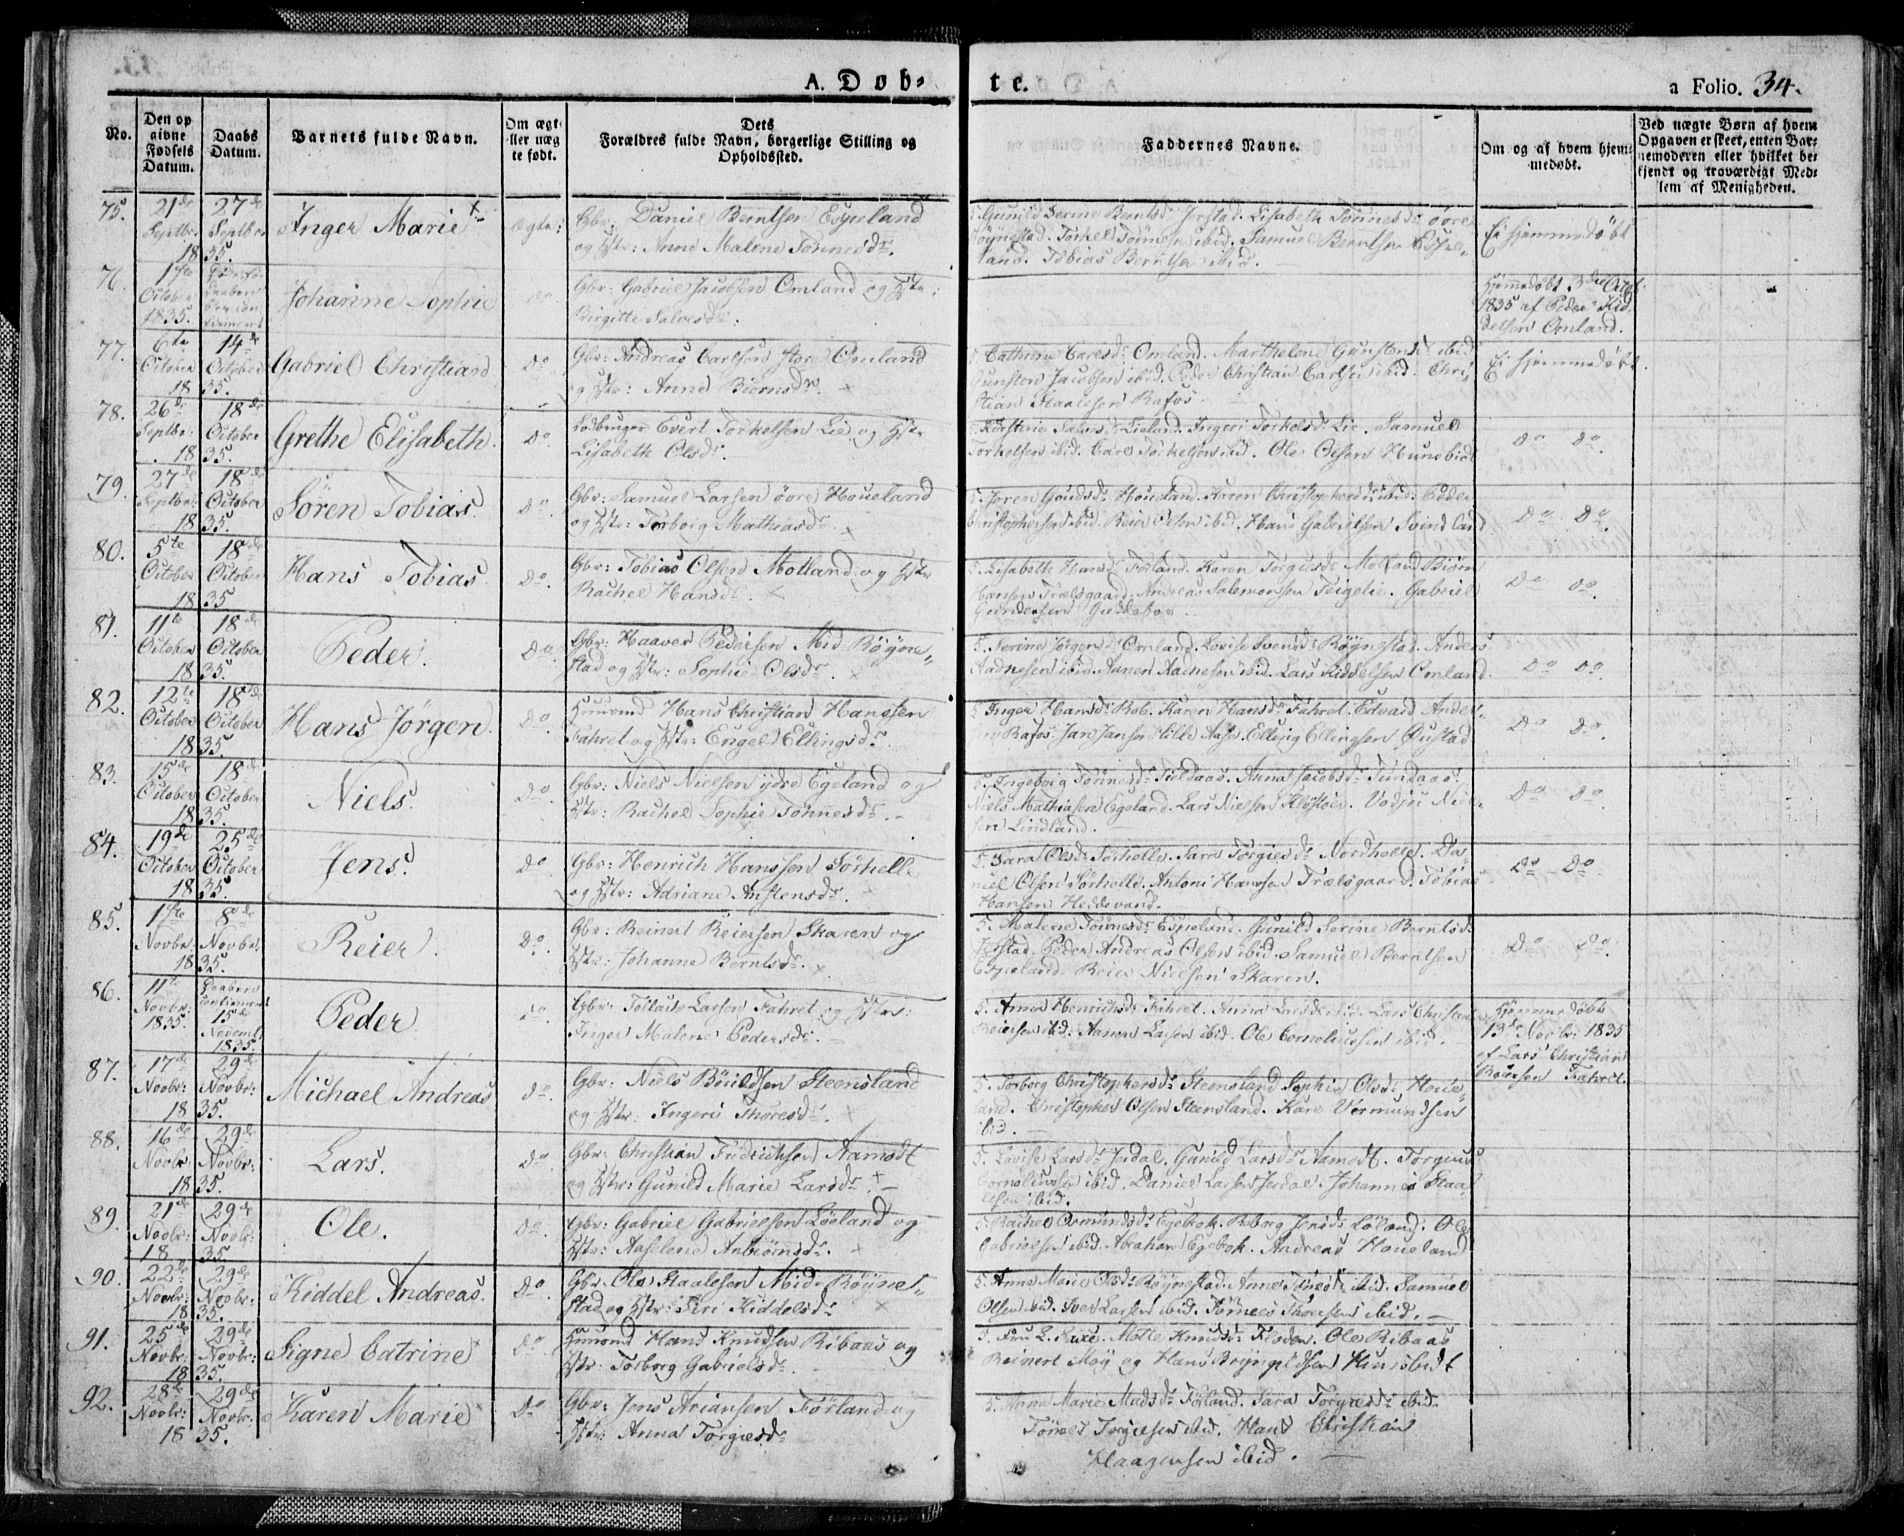 A. Døb-
te.
a Folio. 34.
No.
Den op
givne
Fødsels
Datum.
Daabs
Datum.
Barnets fulde Navn.
Om ægt
ller uæg
te født.
Dets
Forældres fulde Navn, borgerlige Stilling og
Opholdssted.
Faddernes Navne.
Om og af hvem hjem-
medøbt.
Ved uægte Børn af hvem
Opgaven er skeet, enten Bar-
nemoderen eller hvilket be-
kjendt og troværdigt Med-
lem af Menigheden.
75.
21de
Septbr.
18
27de
Septbr.
35.
Inger Marie
Ægte
Gbr. Daniel Berntsen Espeland
og Hstr: Anne Malene Tønnesdr.
5. Gunild Serine Berntsdr. Jerstad. Lisabeth Tønnesdr. øvre
Røynestad. Torkel Tønnessen ibid. Samuel Berntsen Espe-
land. Tobias Berntsen ibid.
Ei hjemmedøbt
76.
1ste
October
1835.
Johanne Sophie
Do
Gbr. Gabriel Jacobsen Omland og Hstr:
Birgitte Salvesdr:
Hjemmedøbt 3de Octob.
1835 af Peder Kid-
delsen Omland.
77.
6te
October
18
14de
October
35.
Gabriel Christian
Do
Gbr: Andreas Carlsen store Omland
og Hstr: Anne Biørnsdr.
5. Cathrine Carlsdr. Omland. Marthelene Gunstensdr ibid.
Gunsten Jacobsen ibid. Peder Christian Carlsen ibid. Chri-
stian Staalesen Rafos.
Ei hjemmedøbt.
78.
26de
Septbr:
18
18de
October
35.
Grethe Elisabeth.
Do
Evert Torkelsen Lie og Hstr
Lisabeth Olsdr.
Salvesdr. Lieland. Ingeri Torkelsdr. Lie. Samuel
Torkelsen ibid. Carl Torkelsen ibid. Ole Olsen Hunsbie
Do Do
79.
27de
Septbr:
18
18de
October
35.
Søren Tobias.
Do
Gbr: Samuel Larsen øvre Houeland
og Hstr: Torborg Mathiasdr.
5. Joren Houeland. Karen Christophersdr ibid. Peder
Christophersen ibid. Reier Olsen ibid. Hans Gabrielsen Svindland
Do Do.
80.
5te
October
18
18de
October
35
Hans Tobias.
Do
Gbr: Tobias Olsen Molland og Hstr
Rachel Hansdr.
5. Lisabeth Hansdr. Førland. Karen Torgiusdr. Molland. Biørn
Hansen Trælsgaard. Andreas Salemonsen Teigelie. Gabriel
Gundersen
Do Do.
81.
11te
October
18
18de
October
35.
Peder.
Do
Gbr: Haaver Pedersen Mid Røyne-
stad og Hstr: Sophie Olsdr.
5. Serine Jørgensdr Omland. Lovise Svensdr. Røynestad. Anders
Aadnesen ibid. Aanen Aadnesen ibid. Lars Kiddelsen Omland.
Do Do.
82.
12te
October
18
18de
October
35.
Hans Jørgen.
Do
Huusmd Hans Christian Hanssen
Fahret og Hstr: Engel Ellingsdr.
5. Inger Hansdr. Rob. Karen Hansdr. Fahret. Edvard Ander-
sen Rafos. Jan Jansen Hille. Elling Ellingsen Øustad
Do Do.
83.
15de
October
18
18de
October
35.
Niels.
Do
Gbr: Niels Nielsen ydre Egeland og
Hstr: Rachel Sophie Tønnesdr.
5. Ingeborg Tønnesdr. Anna Jacobsdr.
Niels Mathiasen Egeland. Lars Nielsen Niel-
sen Lindland.
Do Do.
84.
19de
October
18
25de
October
35.
Jens.
Do
Gbr: Henrich Hanssen Sørhelle
og Hstr: Adriane Anstensdr.
5. Sara Olsdr. Sørhelle. Sara Torgiesdr. Nordhelle. Da-
niel Olsen Sørhelle. Antoni Hansen Trælsgaard. Tobias
Hansen Heddevand.
Do Do.
85.
1ste
Novbr.
18
8de
Novbr.
35.
Reier.
Do
Gbr. Reinert Reiersen Skaren og
Hstr: Johanne Berntsdr.
5. Malene Tønnesdr. Espeland. Gunild Serine Berntsdr.
Jerstad. Peder Andreas Olsen ibid. Samuel Berntsen
Espeland. Reier Nielsen Skaren.
Do Do.
86.
11te
Novbr.
1835.
Daaben
15de
Novemb.
1835.
Peder
Do
Gbr: Larsen Fahret og Hstr:
Inger Malene Pedersdr.
5. Anna Henrichsdr. Fahret. Anna Larsdr ibid. Lars Christian
Reiersen ibid. Aanen Larsen ibid. Ole Corneliussen ibid.
Hjemmedøbt
13de Novbr: 1835
af Lars Christian
Reiersen Fahret.
87.
17de
Novbr:
18
29de
Novbr:
35.
Michael Andreas
Do
Gbr: Niels Steensland
og Hstr: Ingeri Thoresdr.
5. Torborg Christophersdr. Steensland. Sophie Olsdr. Houe-
land. Christopher Olsen Steensland. Kare Vermundsen
ibid.
88.
16de
Novbr:
18
29de
Novbr:
35.
Lars.
Do
Gbr: Christian Fridrichsen Aamodt
og Hstr: Gunild Marie Larsdr.
5. Lovise Larsdr. Jerdal. Gunild Larsdr Aamodt. Torgius
Corneliussen ibid. Daniel Larsen Jerdal. Johannes Staa-
lesen ibid.
89.
21de
Novbr:
18
29de
Novbr:
35.
Ole.
Do
Gbr: Gabriel Gabrielsen Løeland og
Hstr: Aaselene Anbiørnsdr.
5. Rachel Osmundsdr. Egebok. Jensdr. Løland. Ole
Gabrielsen ibid. Abraham Egebok. Andreas Houeland
90.
22de
Novbr:
18
29de
Novbr:
35.
Kiddel Andreas.
Do
Gbr. Ole Staalesen Mid Røyne-
stad og Hstr: Siri Kiddelsdr
5. Anne Marie Olsdr Røynestad. Anne ibid. Samuel
Olsen ibid. Sven Larsen ibid. Tønnes Thoresen ibid.
91.
25de
Novbr:
18
29de
Novbr:
35.
Signe Catrine
Do
Huusmd Hans Knudsen Ribaas og
Hstr: Torborg Gabrielsdr.
5. Fru Mette Knudsdr. Ole Ribaas
Reinert Moy og Hans Brynjeldsen
92.
28de
Novbr:
18
29de
Novbr:
35.
Karen Marie
Do
Gbr: Jens Ariansen Førland og
Hstr: Anna Torgiesdr
5. Anne Marie Madsdr. Førland. Sara Torgiesdr ibid.
Tønnes Torgiesen ibid. Hans Christian
Haagensen ibid.